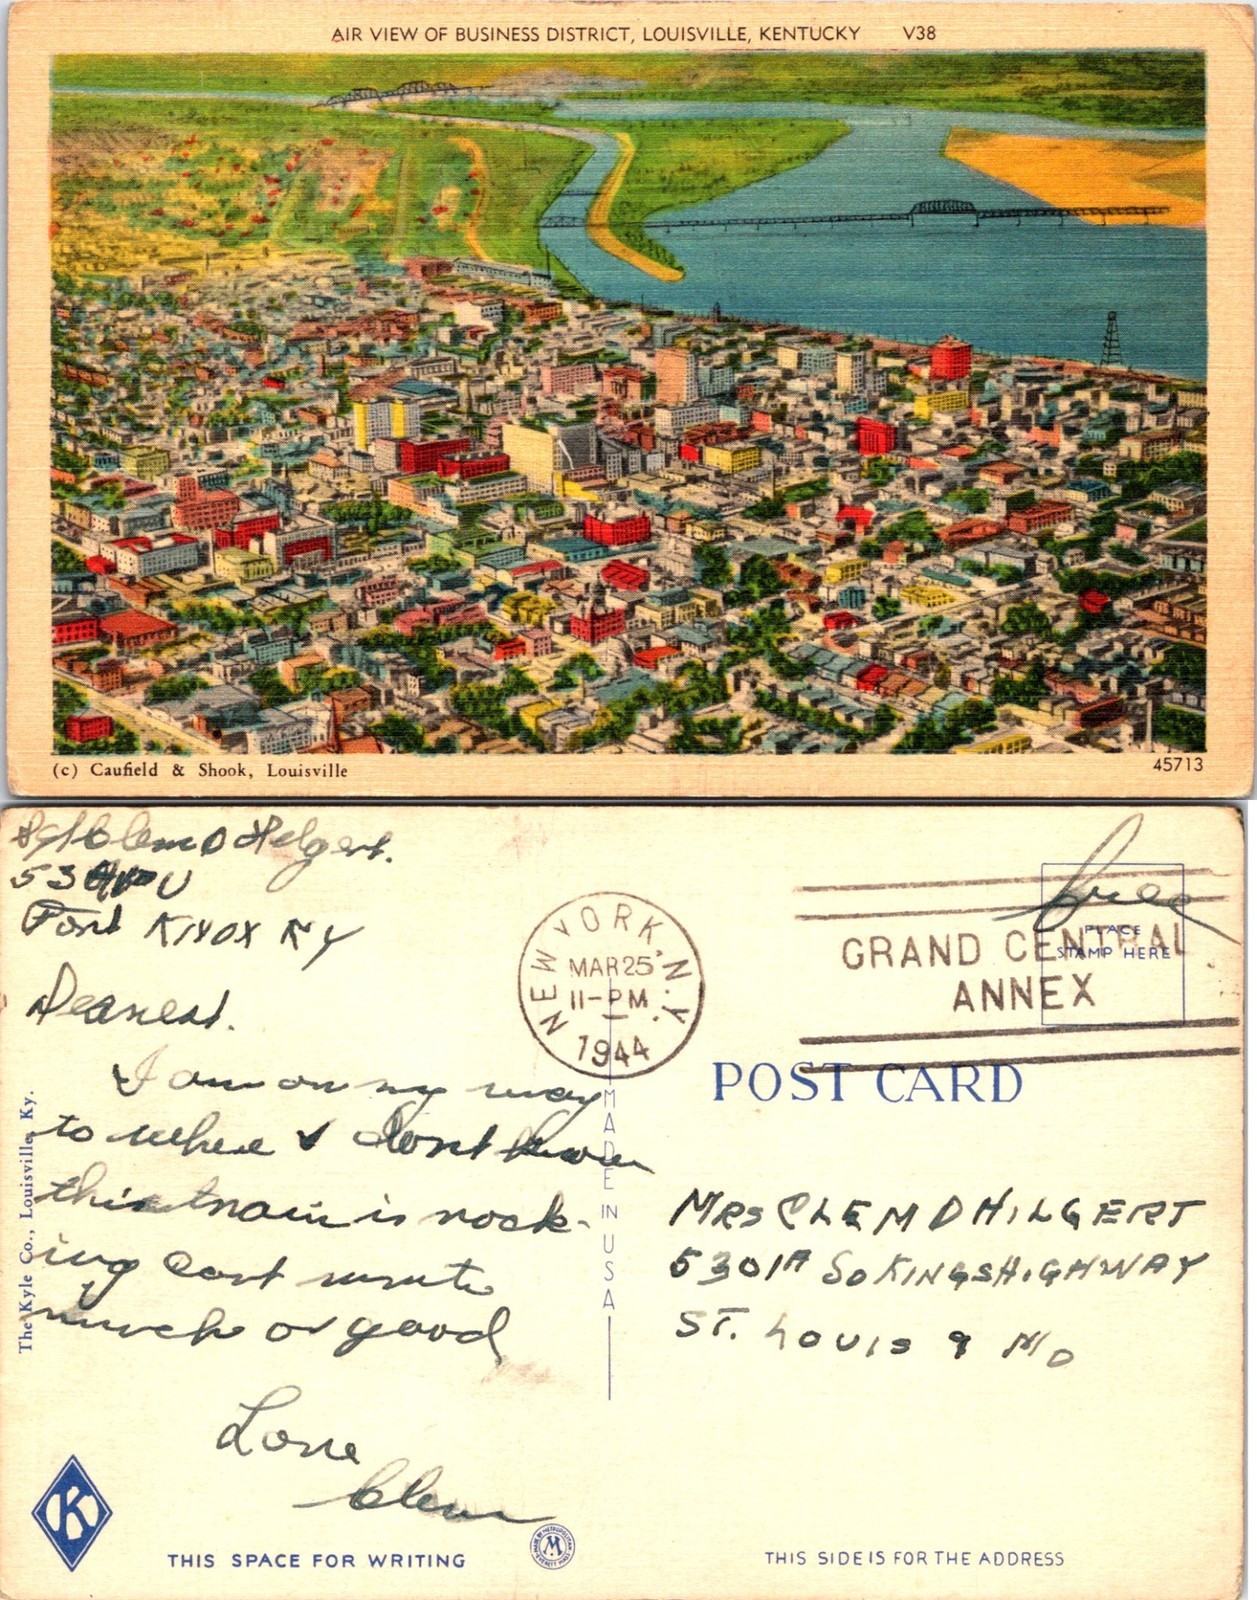 AIR VIEW OF BUSINESS DISTRICT, LOUISVILLE, KENTUCKY V38
(c) Caufield & Shook, Louisville
45713
Clem D Hilgert.
53
Fort KNOX KY
Dearest.
I am on my way
to where I dont know
this train is rock-
ing cant write
much or good
Love
Clem
free
NEW YORK, N.Y.
MAR 25
11-PM
1944
GRAND CENTRAL
ANNEX
PLACE
STAMP HERE
POST CARD
MADE IN USA
The Kyle Co., Louisville, Ky.
MRS CLEM D HILGERT
5301A SO KINGSHIGHWAY
ST. LOUIS 9 MO
K
THIS SPACE FOR WRITING
MADE BY METROPOLITAN
M
EVERETT MASS
THIS SIDE IS FOR THE ADDRESS